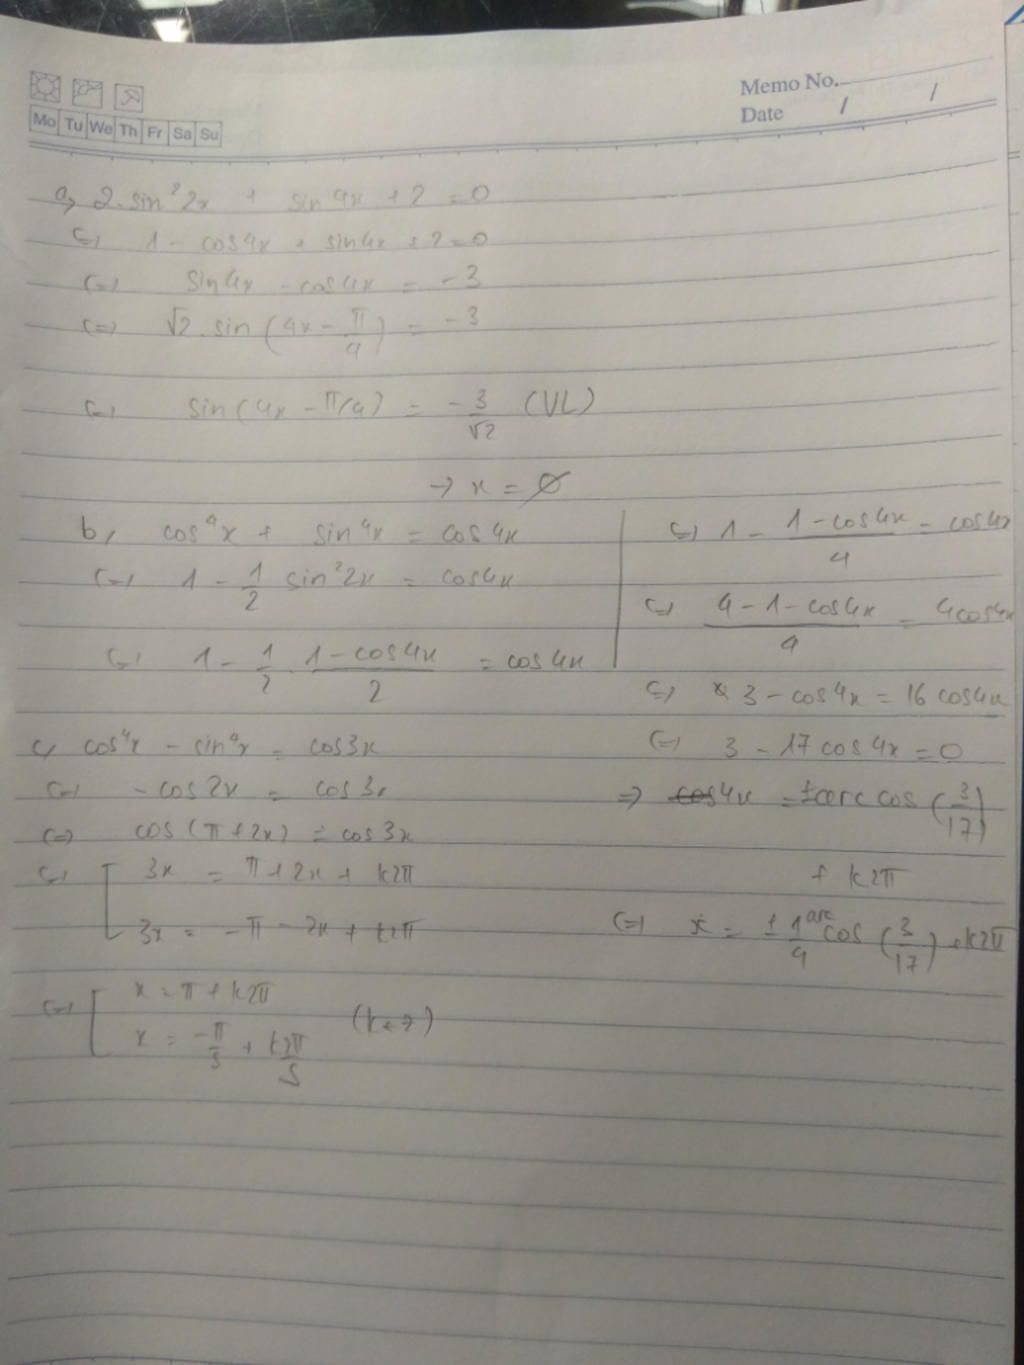 Memo No.
Date / /
Mo Tu We Th Fr Sa Su
a, 2.sin²2x + sin4x + 2 = 0
(=) 1 - cos4x + sin4x + 2 = 0
(=) sin4x - cos4x = -3
(=) √2.sin(4x - π/4) = -3
(=) sin(4x - π/4) = -3/√2 (VL)
→ x = ∅
b, cos⁴x + sin⁴x = cos4x
(=) 1 - 1/2 sin²2x = cos4x
(=) 1 - 1/2 . (1-cos4x)/2 = cos4x
(=) 1 - (1-cos4x)/4 = cos4x
(=) (4-1-cos4x)/4 = 4cos4x
(=) 3 - cos4x = 16cos4x
(=) 3 - 17cos4x = 0
=> 4x = ±arccos(3/17)
+ k2π
(=) x = ± 1/4 arccos(3/17) + k2π
c, cos⁴x - sin⁴x = cos3x
(=) -cos2x = cos3x
(=) cos(π+2x) = cos3x
(=) [ 3x = π + 2x + k2π
3x = -π - 2x + k2π
(=) [ x = π + k2π
x = -π/5 + k2π/5 (k∈Z)